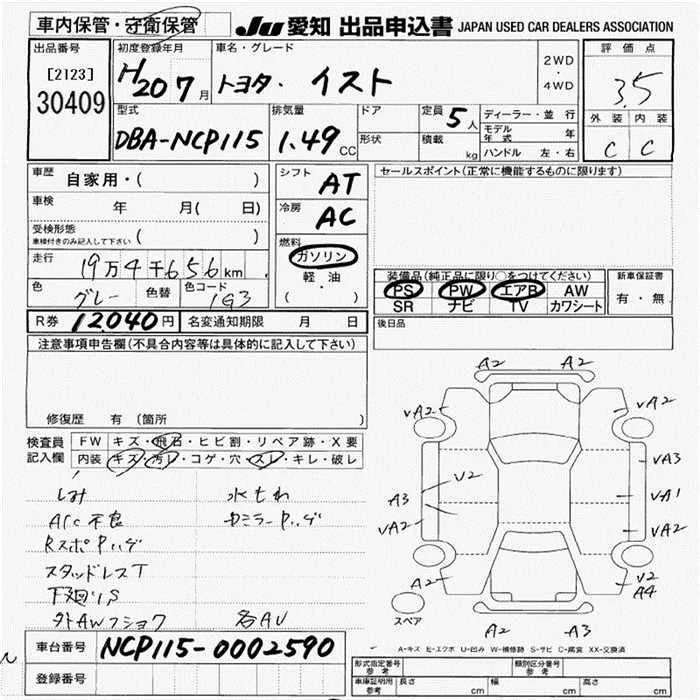 車内保管・守衛保管 JU 愛知 出品申込書 JAPAN USED CAR DEALERS ASSOCIATION
出品番号 初度登録年月 車名・グレード 評価点
[2123] H20 7月 トヨタ・イスト 2WD・4WD 3.5
30409
型式 排気量 ドア 定員 5人 ディーラー・並行 外装 内装
DBA-NCP115 1.49CC 形状 積載 kg モデル年式 年 C C
ハンドル 左・右
車歴 自家用・( ) シフト AT セールスポイント(正常に機能するものに限ります)
車検 年 月( 日) 冷房 AC
受検形態 ( )
車検付きのみ記入して下さい
燃料 ガソリン
走行 19万4千656km 軽・油 装備品(純正品に限り○をつけてください) 新車保証書
色 グレー 色替 色コード 1G3 ( ) PS PW エアB AW 有・無
SR ナビ TV カワシート
R券 12040円 名変通知期限 月 日 後日品
注意事項申告欄(不具合内容等は具体的に記入して下さい)
修復歴 有 (箇所 )
検査員 FW キズ・飛石・ヒビ割・リペア跡・X要
記入欄 内装 キズ・汚レ・コゲ・穴・スレ・キレ・破レ
しみ
A/C不良
RスポPハゲ
スタッドレスT
下廻りS
各AU
A2 A2
VA2 VA2
V2 VA3
A3 VA1
VA2 VA2
A2 V2
A4
スペア
A2 A3
A-キズ E-エクボ U-凹み W-補修跡 S-サビ C-腐食 XX-交換済
車台番号 NCP115-0002590
登録番号
形式指定番号 参考 類別区分番号 参考
車庫証明用 参考 長さ cm 幅 cm 高さ cm